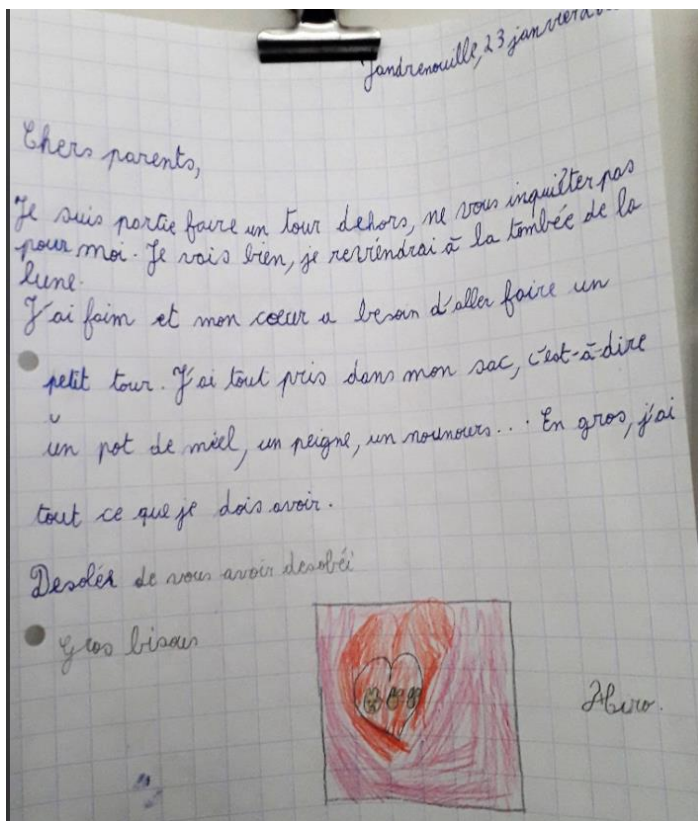 Jandrenouille, 23 janvier
Chers parents,
Je suis partie faire un tour dehors, ne vous inquilter pas
pour moi. Je vais bien, je revréndrai à la tombée de la
lune.
J'ai faim et mon cœur a besoin d'aller faire un
petit tour. J'ai tout pris dans mon sac, c'est-à-dire
un pot de miel, un peigne, un nounours... En gros, j'ai
tout ce que je dois avoir.
Desolér de vous avoir desobéi
Gros bisous